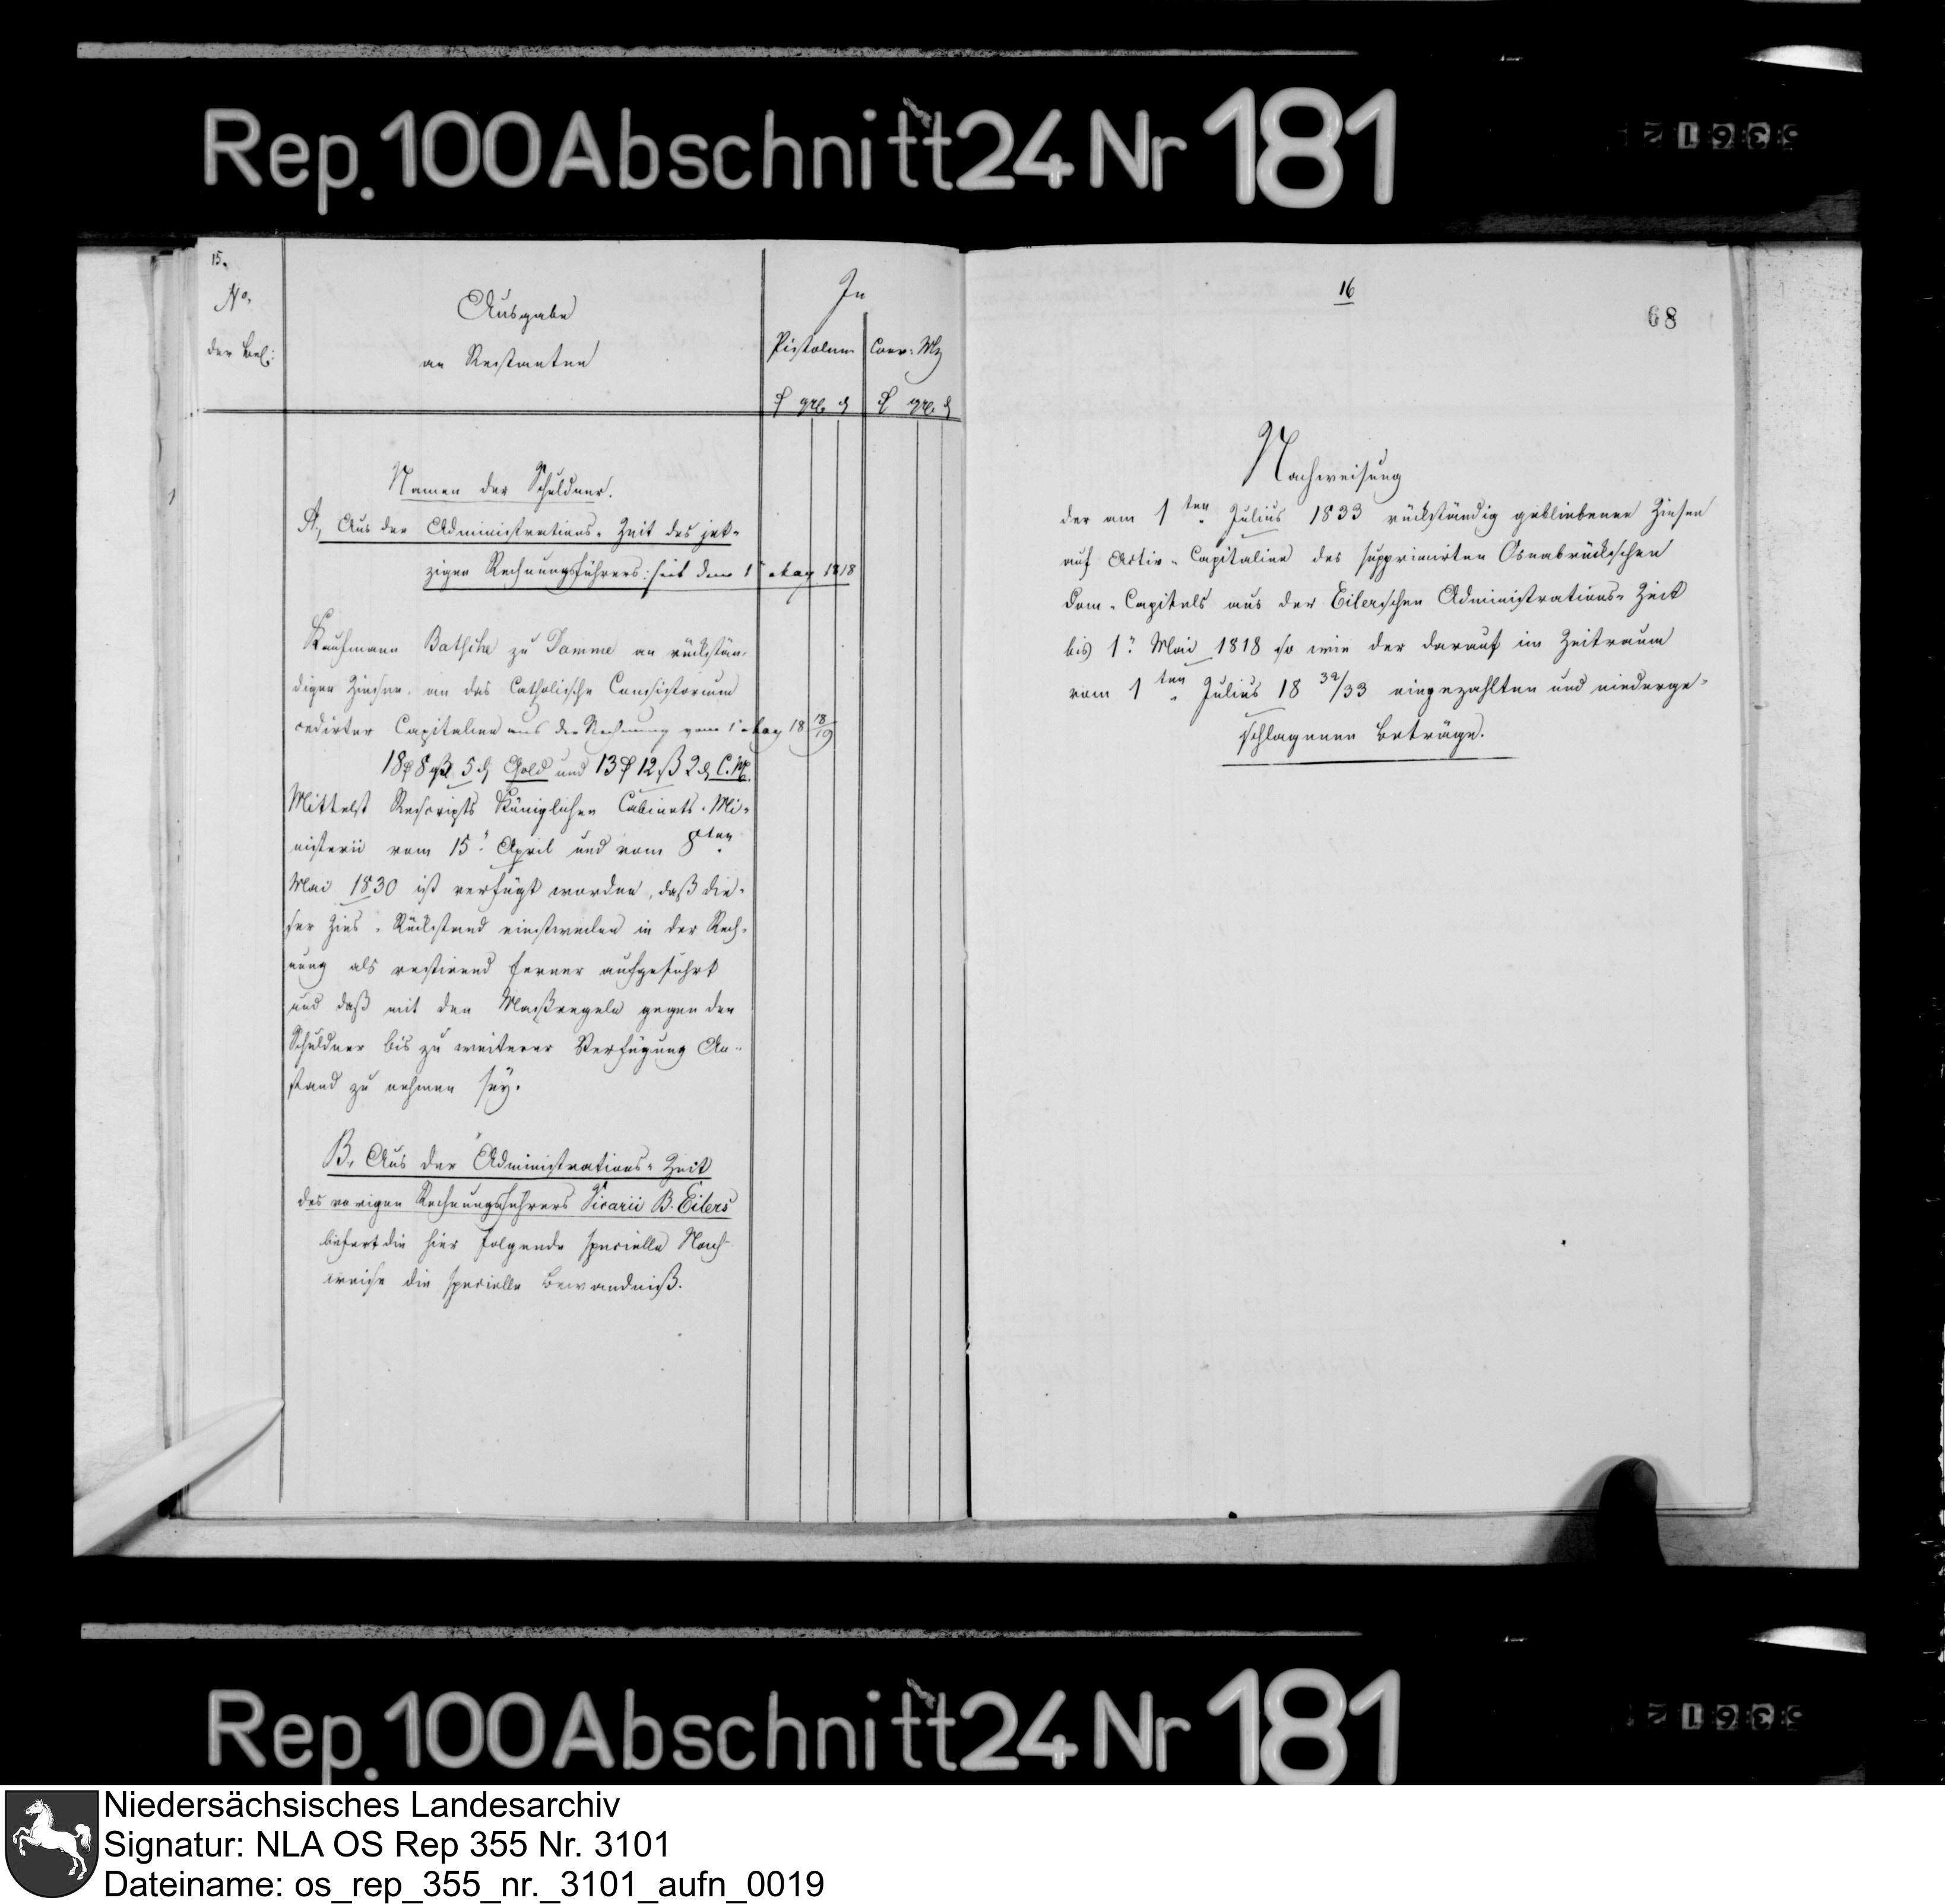 Rep. 100 Abschnitt 24 Nr 181
15.
No.
der Bel:
Ausgabe
an Restanten
In
Pistolen
Conv: Mz
₰ gr. ₰ ₰ gr. ₰
Namen der Schuldner.
A, Aus der Administrations-Zeit des jet-
zigen Rechnungsführers: seit dem 1 May 1818
Kaufmann Bathsche zu Damme an rückstän-
digen Zinsen, an das Catholische Consistorium
cedirter Capitalien aus der Rechnung vom 1 May 18 18/19
18 ₰ 8 gß 5 ₰ Gold und 13 ₰ 12 ß 2 ₰ C. M.
Mittelst Rescripts Königlichen Cabinets-Mi-
nisterii vom 15. April und vom 8ten
Mai 1830 ist verfügt worden, daß die-
ser Zins-Rückstand einstweilen in der Rech-
nung als restirend ferner aufgeführt
und daß mit den Maßregeln gegen den
Schuldner bis zu weiterer Verfügung An-
stand zu nehmen sey.
B, Aus der Administrations-Zeit
des vorigen Rechnungsführers Vicarii B. Eilers
liefert die hier folgende specielle Nach-
weise die specielle Bewandniß.
16
68
Nachweisung
der am 1ten Julius 1833 rückständig gebliebenen Zinsen
auf Activ-Capitalien des supprimirten Osnabrückschen
Dom-Capitels aus der Eilerschen Administrations-Zeit
bis 1. Mai 1818 so wie der darauf im Zeitraum
vom 1ten Julius 18 32/33 eingezahlten und niederge-
schlagenen Beträge.
Rep. 100 Abschnitt 24 Nr 181
Niedersächsisches Landesarchiv
Signatur: NLA OS Rep 355 Nr. 3101
Dateiname: os_rep_355_nr._3101_aufn_0019